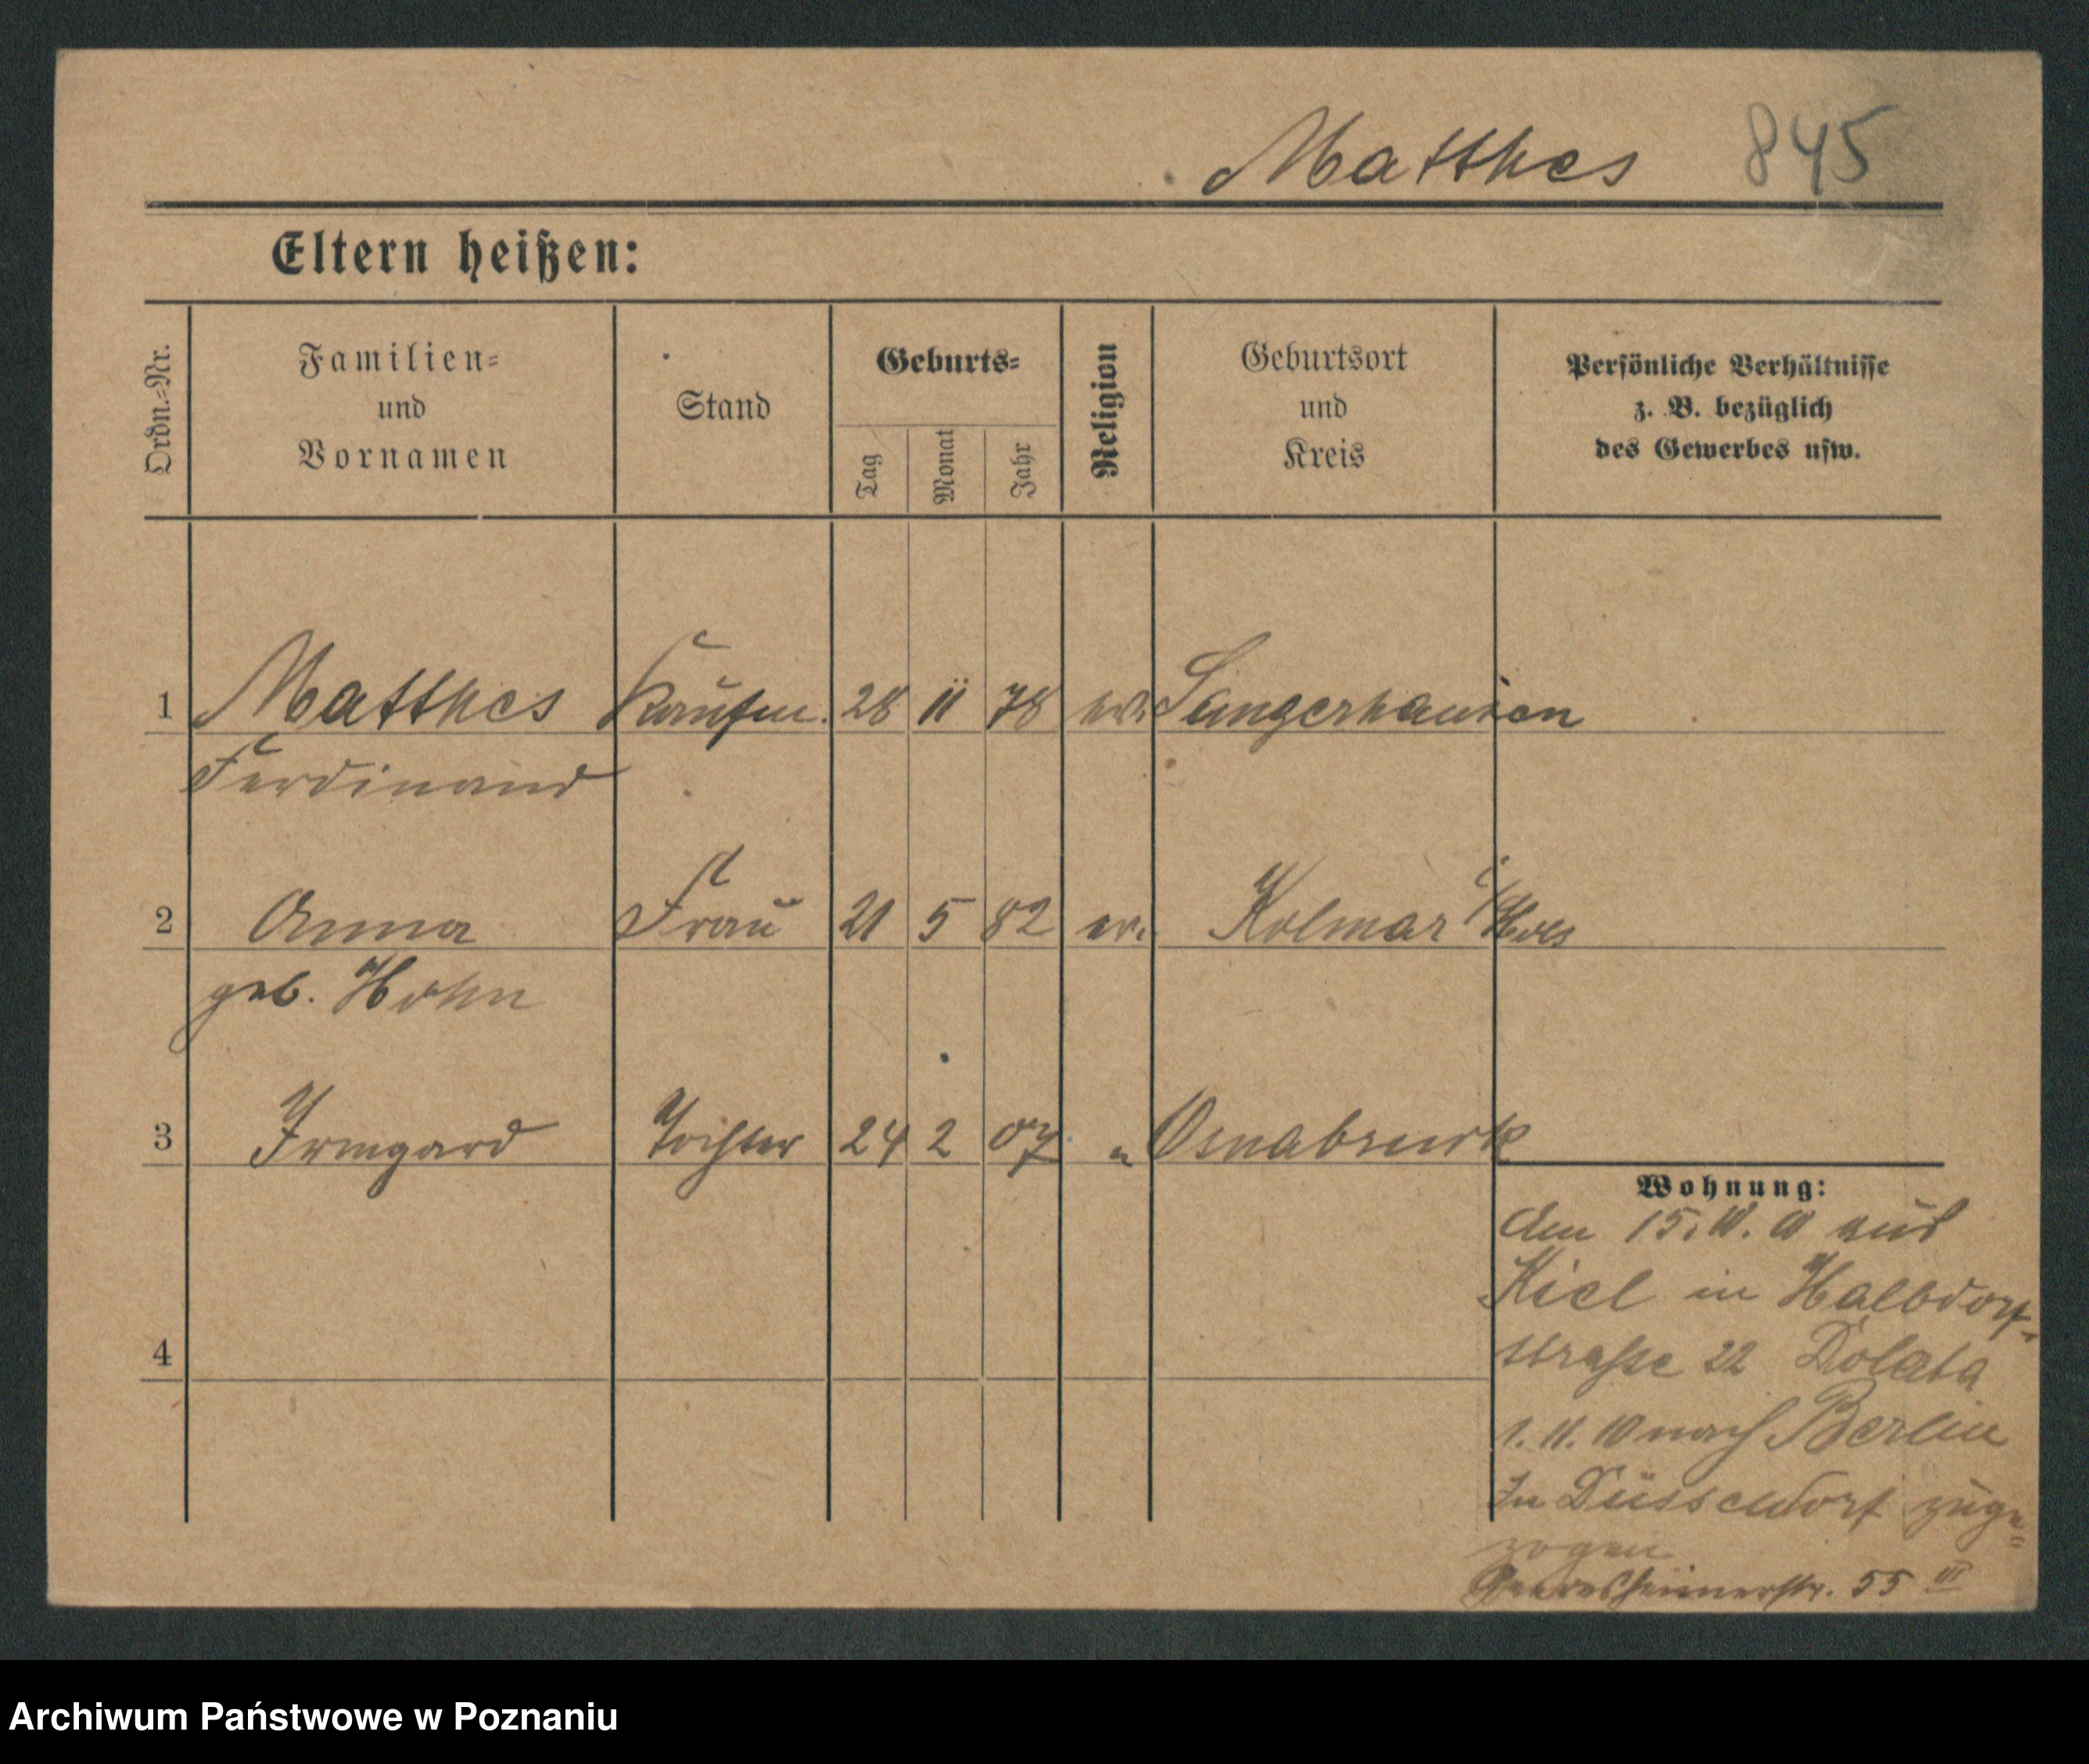 Matthes 845
Eltern heißen:
Ordn.-Nr.
Familien- und Vornamen
Stand
Geburts-
Tag
Monat
Jahr
Religion
Geburtsort und Kreis
Persönliche Verhältnisse
z. B. bezüglich
des Gewerbes usw.
1 Matthes Kaufm. 28 11 78 ev. Sangerhausen
Ferdinand
2 Anna Frau 21 5 82 ev. Kolmar i/
geb. Hohn
3 Irmgard Tochter 24 2 07 " Osnabruck
Wohnung:
Am 15. aus
Kiel in Halbdorf-
straße 22 Dolata
4
1. 11. 10 nach Berlin
In Düsseldorf zuge=
zogen
55 III
Archiwum Państwowe w Poznaniu